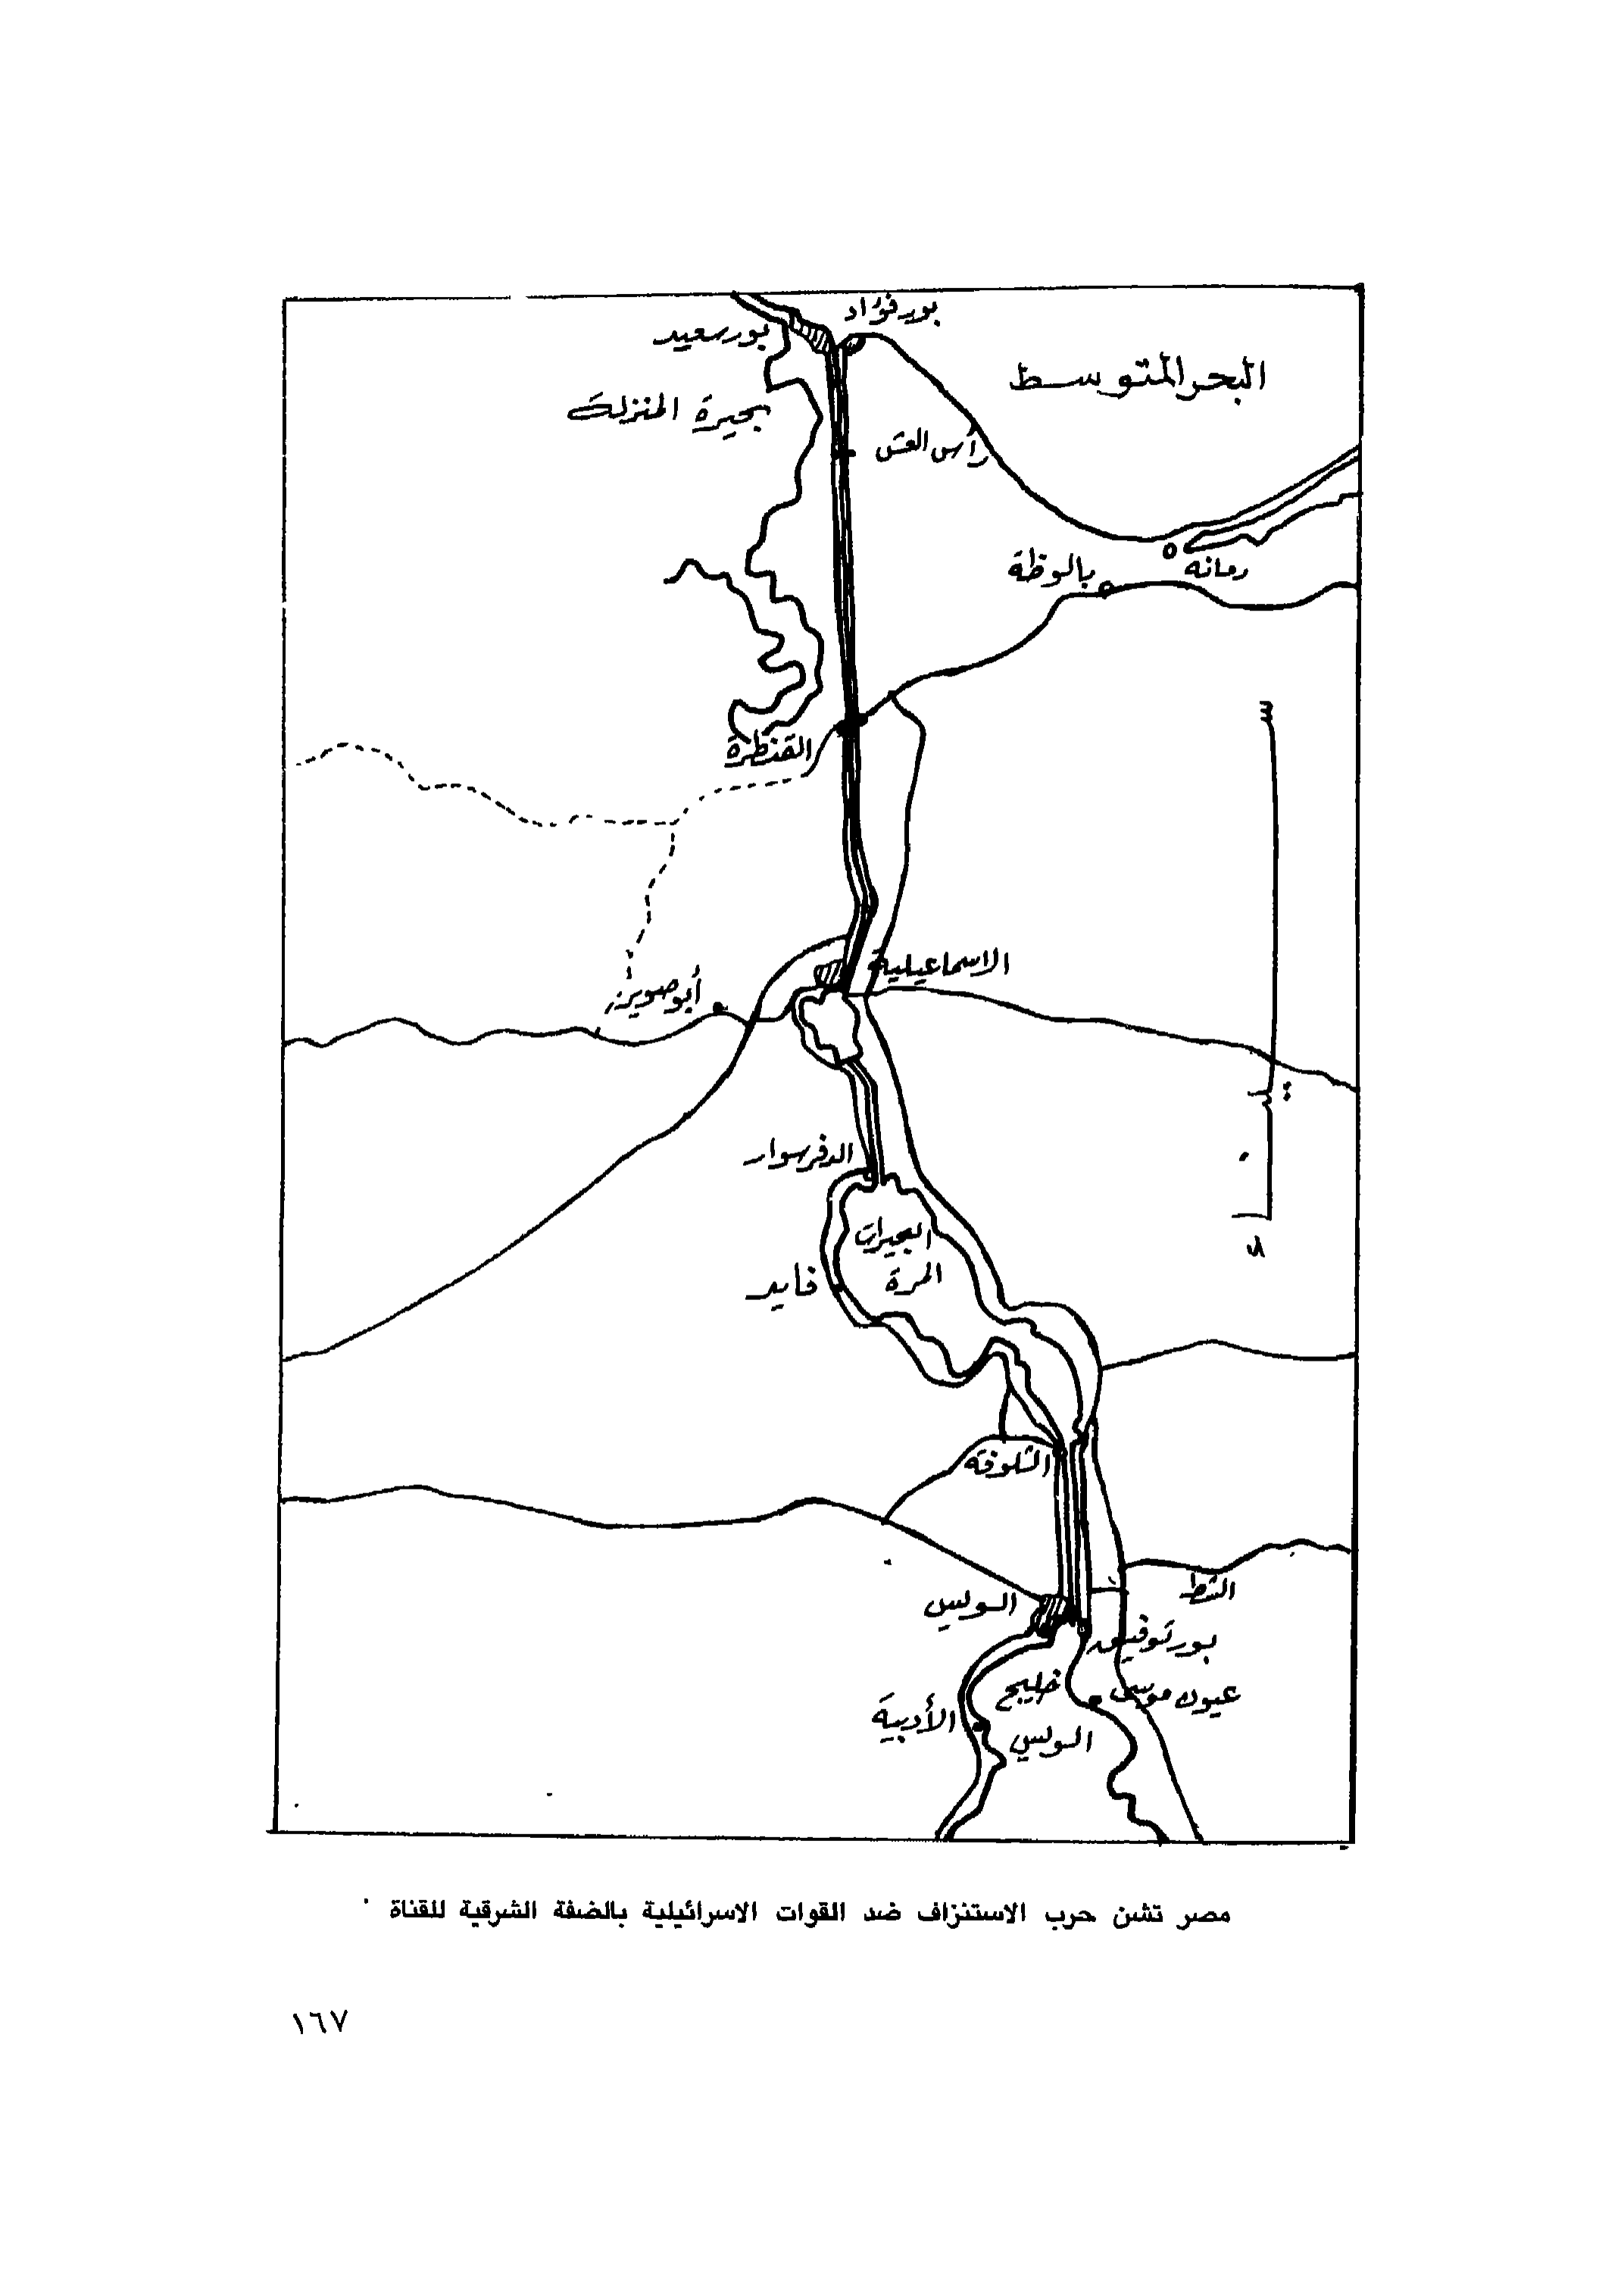 بور فؤاد
بور سعيد
البحر المتوسط
بحيرة المنزلة
رأس العش
رمانه
بالوظة
القنطرة
سيناء
الاسماعيلية
أبو صوير
الدفرسوار
البحيرات
المرة
فايد
الشلوفة
الشط
السويس
بور توفيق
خليج
السويس
عيون موسى
الأدبية
مصر تشن حرب الاستنزاف ضد القوات الاسرائيلية بالضفة الشرقية للقناة .
١٦٧